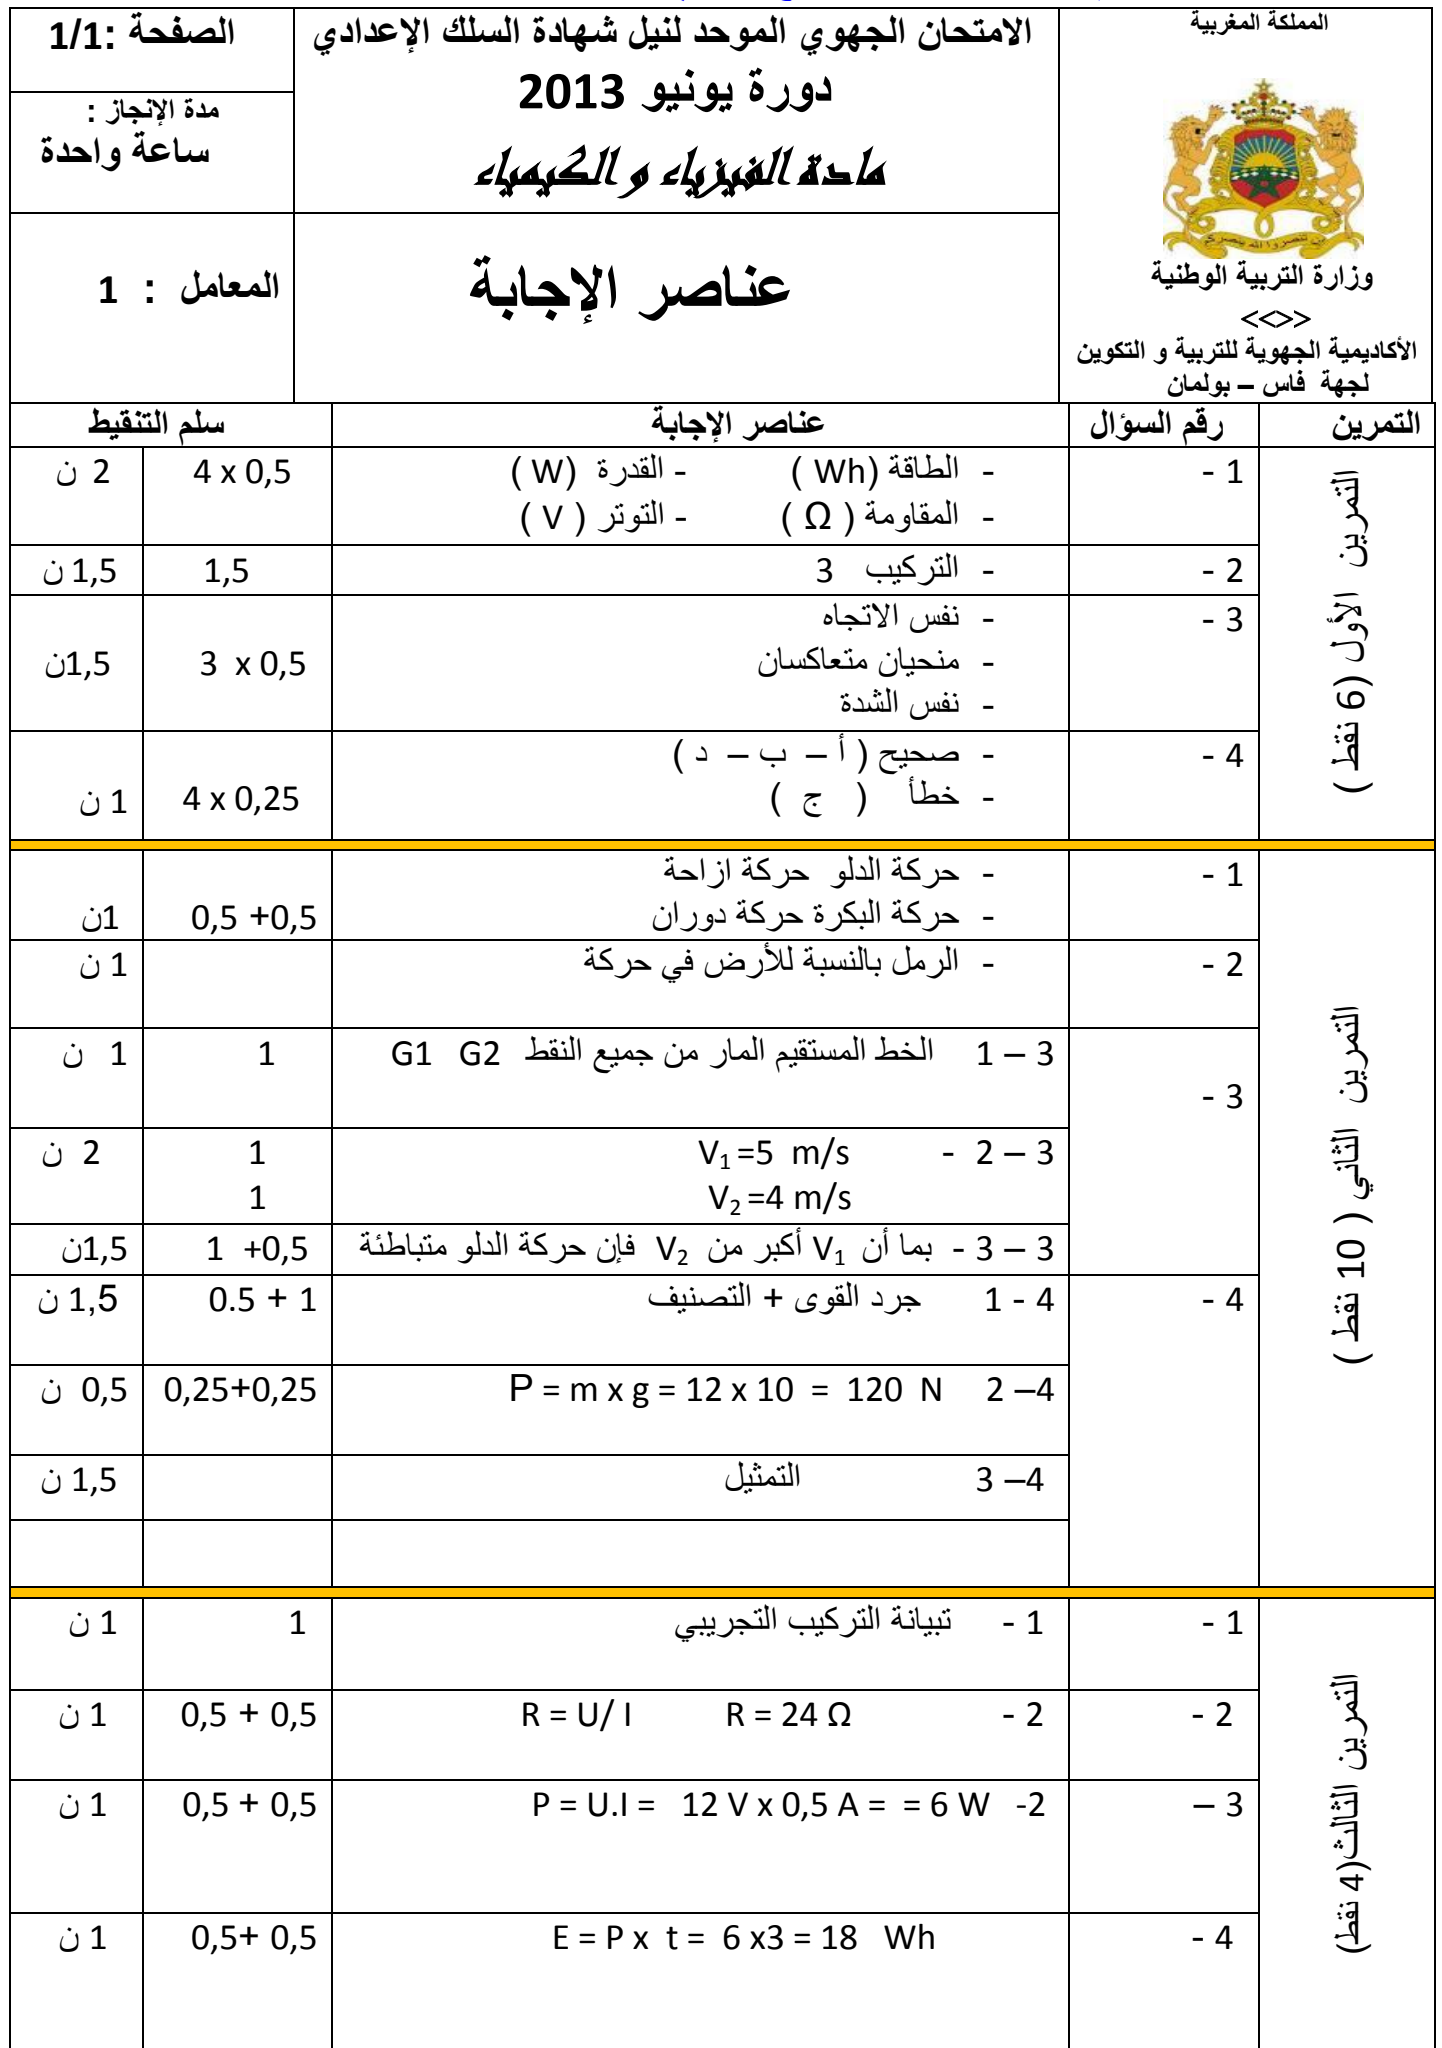 المملكة المغربية
وزارة التربية الوطنية
<<>>
الأكاديمية الجهوية للتربية و التكوين
لجهة فاس – بولمان
الامتحان الجهوي الموحد لنيل شهادة السلك الإعدادي
دورة يونيو 2013
مادة الفيزياء و الكيمياء
الصفحة :1/1
مدة الإنجاز :
ساعة واحدة
عناصر الإجابة
المعامل : 1
التمرين رقم السؤال عناصر الإجابة سلم التنقيط
التمرين الأول (6 نقط )
1 - - الطاقة (Wh ) - القدرة (W ) 4 x 0,5 2 ن
- المقاومة ( Ω ) - التوتر ( V )
2 - - التركيب 3 1,5 1,5 ن
3 - - نفس الاتجاه
- منحيان متعاكسان 3 x 0,5 1,5ن
- نفس الشدة
4 - - صحيح ( أ – ب – د )
- خطأ ( ج ) 4 x 0,25 1 ن
التمرين الثاني ( 10 نقط )
1 - - حركة الدلو حركة ازاحة
- حركة البكرة حركة دوران 0,5 +0,5 1ن
2 - - الرمل بالنسبة للأرض في حركة 1 ن
3 -
3 – 1 الخط المستقيم المار من جميع النقط G1 G2 1 1 ن
3 – 2 - V1 =5 m/s 1 2 ن
V2 =4 m/s 1
3 – 3 - بما أن V1 أكبر من V2 فإن حركة الدلو متباطئة 1 +0,5 1,5ن
4 - 4 - 1 جرد القوى + التصنيف 0.5 + 1 1,5 ن
4– 2 P = m x g = 12 x 10 = 120 N 0,25+0,25 0,5 ن
4– 3 التمثيل 1,5 ن
التمرين الثالث(4 نقط)
1 - 1 - تبيانة التركيب التجريبي 1 1 ن
2 - 2 - R = U/ I R = 24 Ω 0,5 + 0,5 1 ن
3 – 2- P = U.I = 12 V x 0,5 A = = 6 W 0,5 + 0,5 1 ن
4 - E = P x t = 6 x3 = 18 Wh 0,5+ 0,5 1 ن